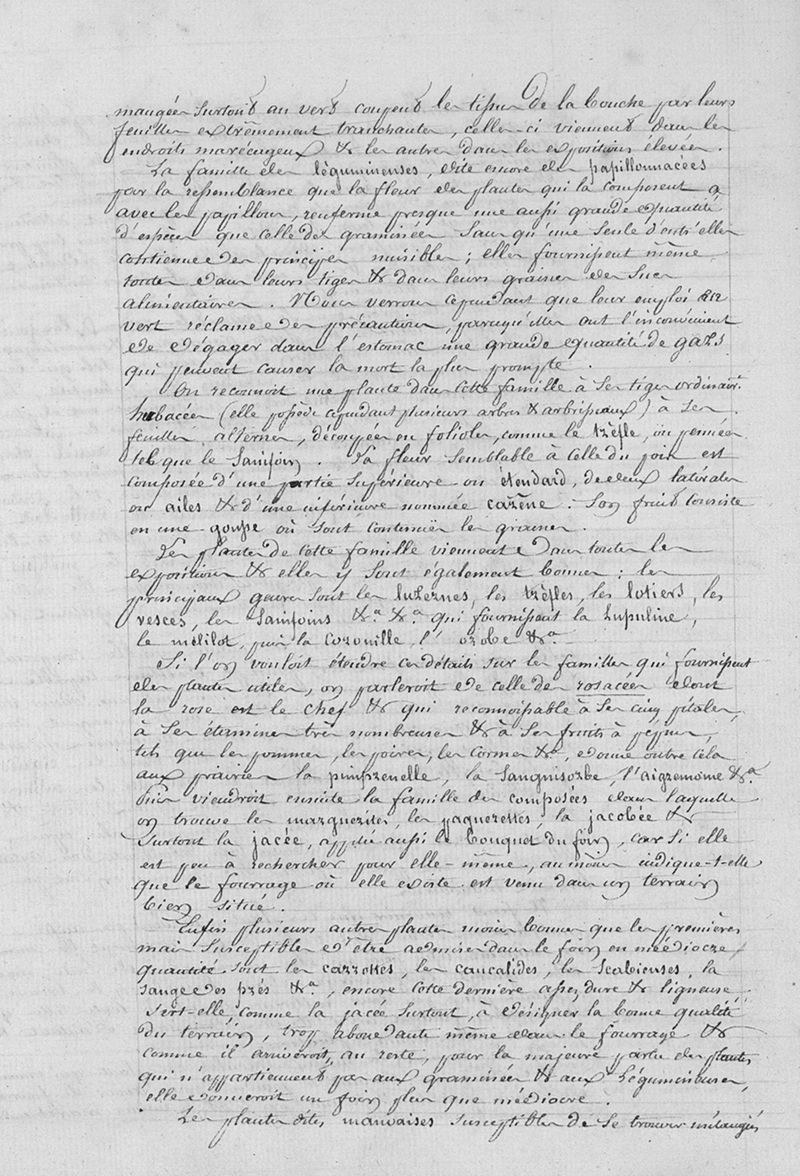 mangées surtout au vert coupent les tissus de la bouche par leurs
feuilles extrêmement tranchantes, celles ci viennent dans les
endroits marécageux & les autres dans les expositions élevées.
La famille des légumineuses, dite encore des papillonnacées
par la ressemblance que la fleur des plantes qui la composent a
avec les papillons, renferme presque une aussi grande quantité
d'espèces que celle des graminées sans qu'une seule d'entr'elles
contienne des principes nuisibles ; elles fournissent même
toutes dans leurs tiges & dans leurs graines des sucs
alimentaires. Nous verrons cependant que leur emploi au
vert réclame des précautions, parcequ'elles ont l'inconvénient
de dégager dans l'estomac une grande quantité de gazs
qui peuvent causer la mort la plus prompte.
On reconnoit une plante dans cette famille à ses tiges ordinairt
herbacées (elle possède cependant plusieurs arbres & arbrisseaux) à ses
feuilles alternes, découpées en folioles, comme le trèfle, ou pennées
tel que le sainfoin. La fleur semblable à celle du pois est
composée d'une partie supérieure ou étendard, de deux latérales
ou ailes & d'une inférieure nommée carène. Son fruit consiste
en une gousse où sont contenües les graines.
Les plantes de cette famille viennent dans toutes les
expositions & elles y sont également bonnes ; les
principaux genres sont les luzernes, les trèfles, les lotiers, les
vesces, les sainfoins &a &a qui fournissent la lupuline,
le mélilot, puis la coronille, l'orobe &a
Si l'on vouloit étendre ces détails sur les familles qui fournissent
des plantes utiles, on parleroit de celle des rosacées dont
la rose est le chef & qui reconnoissable à ses cinq pétales,
à ses étamines très nombreuses & à ses fruits à pepins,
tels que les pommes, les poires, les cormes &a, donne outre cela
aux prairies la pimprenelle, la sanguisorbe, l'aigremoine &a
puis viendroit ensuite la famille des composées dans laquelle
on trouve les marguerites, les paquerettes, la jacobée &
surtout la jacée, appelée aussi le bouquet du foin, car si elle
est peu à rechercher pour elle-même, au moins indique-t-elle
que le fourrage où elle existe est venu dans un terrain
bien situé.
Enfin plusieurs autres plantes moins bonnes que les premières
mais susceptibles d'être admises dans le foin en médiocre
quantité sont les carrottes, les caucalides, les scabieuses, la
sauge des prés &a, encore cette dernière assez dure & ligneuse
sert-elle, comme la jacée surtout, à désigner la bonne qualité
du terrain, trop abondante même dans le fourrage &
comme il arriveroit, au reste, pour la majeure partie des plantes
qui n'appartiennent pas aux graminées & aux légumineuses,
elle donneroit un foin plus que médiocre.
Les plantes dites mauvaises susceptibles de se trouver mélangées